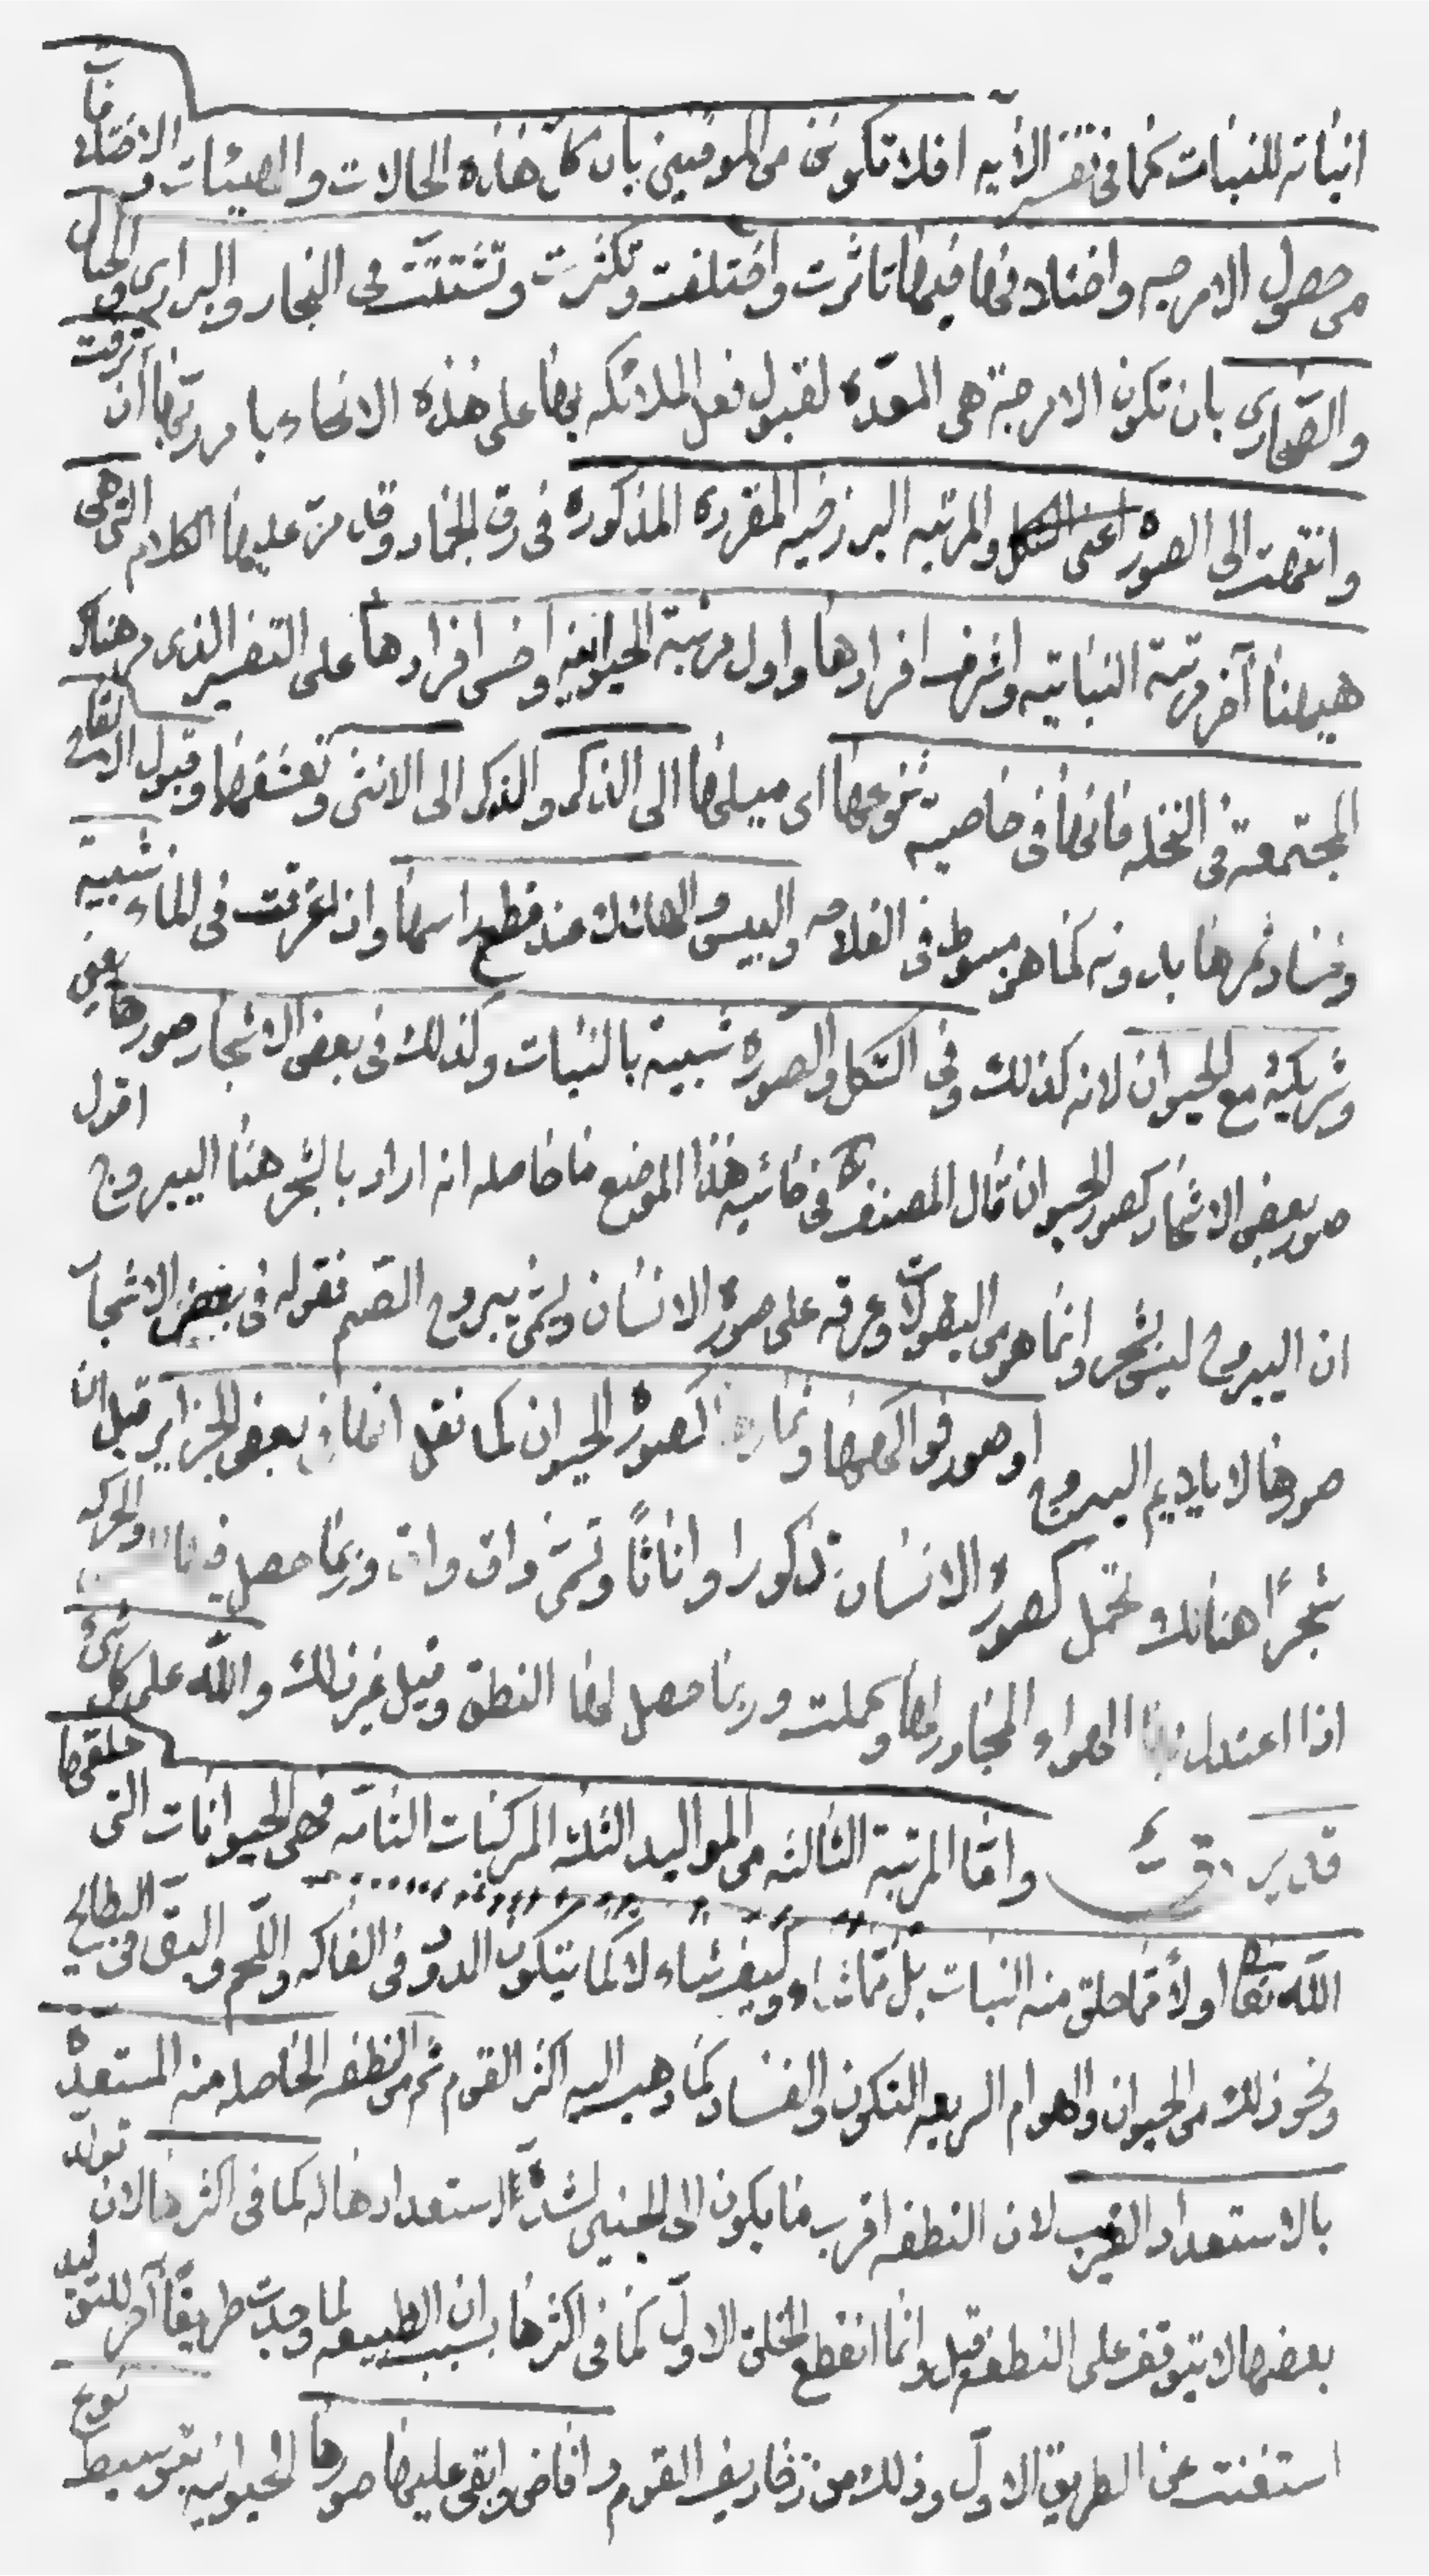 انباته للنبات كما في تفسير الآيه افلا تكونن من الموقنين بان كل هذه الحالات والهيئات الاختلافات
من حصول الامزجه واختلافها فيها تاثرت واختلفت وتكثرت وتشتتت في البحار والبراري والجبال
والصحارى بان تكون الامزجة هي المعدّه لقبول فعل الملائكه بها على هذه الانحاء بامر ربّها ان ترقت
وانتهت الى الصورة اعنى الشكل والمرتبه البرزخيه المقرره المذكوره في رق الجماد وقد مرّ عليها الكلام التي هي
هيهنا آخر مرتبة النباتيه واشرف افرادها واول مرتبة الحيوانيه واخس افرادها على التفسير الذى مر هناك
المجتمعة في النخله فانها في خاصية تزوجها اى ميلها الى الذكر والذكر الى الانثى وتعشقها وقبول اللقاح
وفساد ثمرها بدونه كما هو مبسوط في الفلاحه واليبس والهلاك عند قطع راسها واذا غرقت في الماء شبيه
وشريكة مع الحيوان لانه كذلك وفي الشكل والصوره شبيه بالنبات وكذلك في بعض الاشجار صورها يعنى
صور بعض الاشجار كصور الحيوان قال المصنف في حاشيه هذا الموضع ما حاصله انه اراد بالشجر هنا اليبروج اقول
ان اليبروج ليس بشجر وانما هو من البقولات وعرقه على صورة الانسان ويسمّى يبروج الصنم فقوله في بعض الاشجار
صورها لا يلايم اليبروج او صور فواكهها وثمارها كصورة الحيوان كما نقل انها في بعض الجزاير قيل ان
شجرًا هنالك تحمل كصورة الانسان ذكورا واناثًا وتسمّى واق واق وربما حصل فيها والحركه
اذا اعتدل الهواء المجاور لها وكملت وربما حصل لها النطق وقيل غير ذلك والله على كل شىء
قدير واما المرتبة الثالثه من المواليد الثلثه المركبات التامه فهى الحيوانات التى خلقها
الله تعالى اولاً مما خلق منه النبات بل مما شاء وكيف شاء لا كما يتكون الدود في الفاكه واللحم والبق في البطايح
ونحو ذلك من الحيوان والهوام السريعه التكون والفساد كما ذهب اليه اكثر القوم ثم من النطفه الحاصله منه المستعدة
بالاستعداد القريب لان النطفه اقرب ما يكون الى الجنين لشدّة استعدادها له كما في اكثرها لان تولد
بعضها لا يتوقف على النطفه قيل وانما انقطع الخلق الاول كما في اكثرها بسبب ان الطبيعه لما وجدت طريقًا آخر للتوليد
استغنت عن الطريق الاول وذلك من زخاريف القوم و افاض وابقى عليها صورها الحيوانيه بتوسيط نوع